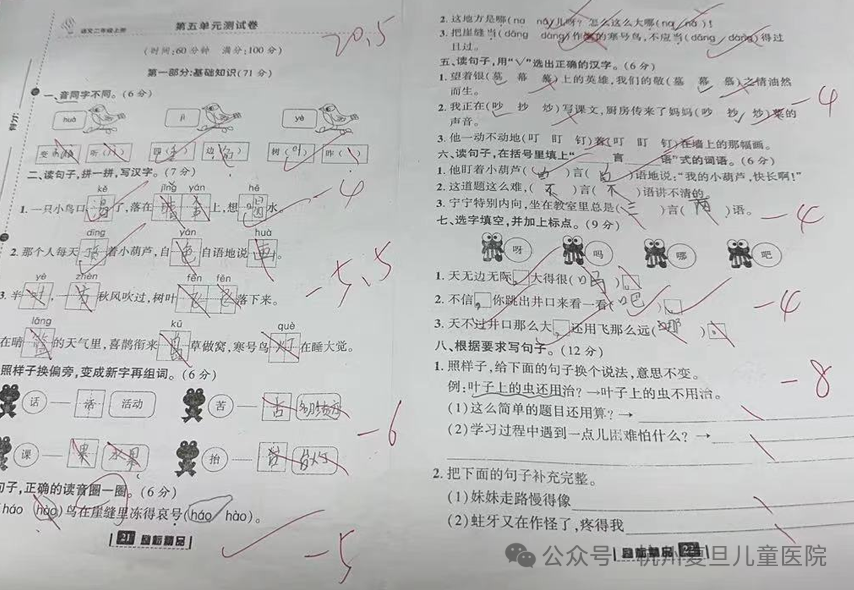 语文二年级上册
第五单元测试卷
20.5
(时间:60分钟 满分:100分)
第一部分:基础知识(71分)
一、音同字不同。(6分)
huà jì yè
变 听 跟 边 树(叶) 昨
二、读句子,拼一拼,写汉字。(7分)
kě jǐng yán hē
1.一只小鸟口渴了,落在 上,想喝水。
-4
dīng yán huà
2.那个人每天 着小葫芦,自 自语地说
yè zhèn fēn fēn
3.半 , 秋风吹过,树叶 落下来。
-5.5
lǎng kū què
在晴 的天气里,喜鹊衔来 草做窝,寒号鸟 在睡大觉。
照样子换偏旁,变成新字再组词。(6分)
话 — 活 活动 苦 — 古
课 — 果 水果 抬 —
-6
句子,正确的读音圈一圈。(6分)
(háo hào)鸟在崖缝里冻得哀号(háo hào)。
-5
21 励耘精品
2.这地方是哪(na nǎ)儿呀?怎么这么大哪(na nǎ)!
3.把崖缝当(dāng dàng)作窝的寒号鸟,不应当(dāng dàng)得过
且过。
五、读句子,用“√”选出正确的汉字。(6分)
1.望着银(墓 幕 慕)上的英雄,我们的敬(墓 幕 慕)之情油然
而生。
-4
2.我正在(吵 抄 炒)写课文,厨房传来了妈妈(吵 抄 炒)菜的
声音。
3.他一动不动地(叮 盯 钉)着(叮 盯 钉)在墙上的那幅画。
六、读句子,在括号里填上“ 言 语”式的词语。(6分)
1.他盯着小葫芦( )言( )语地说:“我的小葫芦,快长啊!”
2.这道题这么难,(不)言(不)语讲不清的。
3.宁宁特别内向,坐在教室里总是(三)言(两)语。
-4
七、选字填空,并加上标点。(9分)
呀 吗 哪 吧
1.天无边无际,大得很(吗)
2.不信,你跳出井口来看一看(吧)
-4
3.天不过井口那么大,还用飞那么远(哪)
八、根据要求写句子。(12分)
1.照样子,给下面的句子换个说法,意思不变。
-8
例:叶子上的虫还用治?→叶子上的虫不用治。
(1)这么简单的题目还用算?→
(2)学习过程中遇到一点儿困难怕什么?→
2.把下面的句子补充完整。
(1)妹妹走路慢得像
(2)蛀牙又在作怪了,疼得我
22
公众号 · 杭州复旦儿童医院